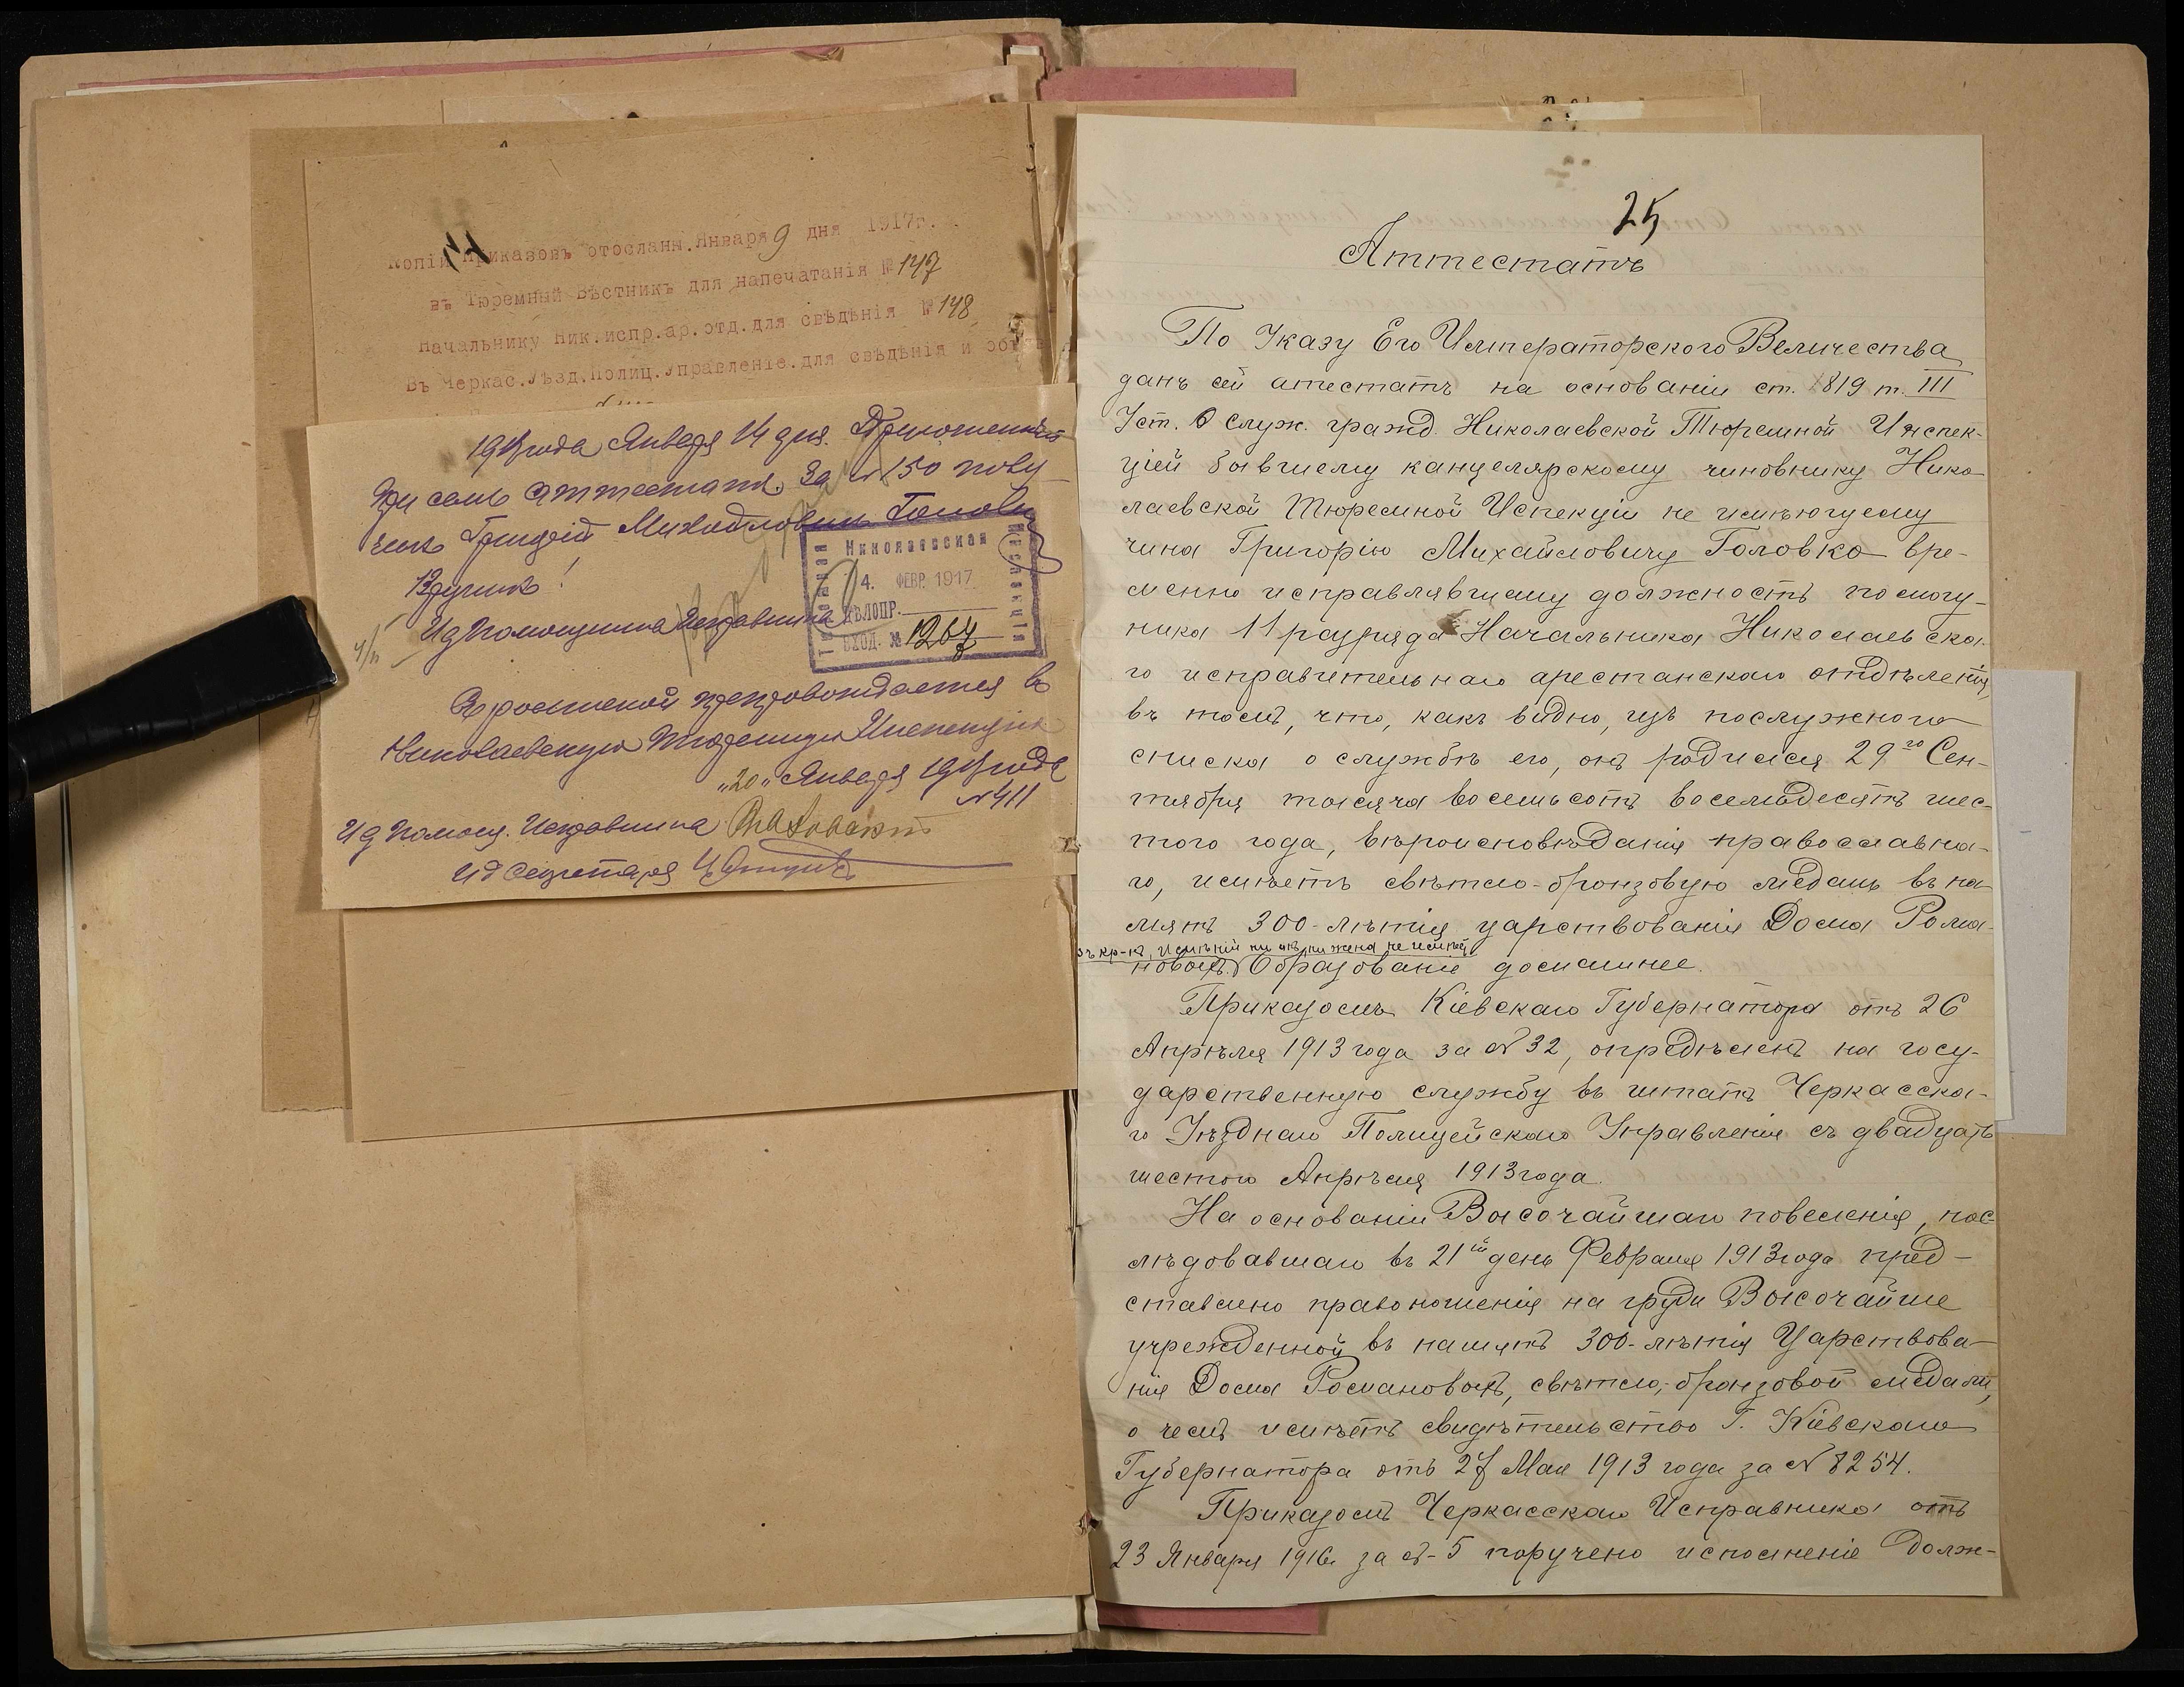 Копіи приказовъ отосланы. Января 9 дня 1917г.
въ Тюремный Вѣстникъ для напечатанія № 147
Начальнику Ник.испр.ар.отд.для свѣдѣнія № 148
Въ Черкас.Уѣзд.Полиц.Управленіе.для свѣдѣнія и объ
1917 года Января 14 дня. Приложенный
при семъ аттестатъ за № 150 полу
чилъ Григорій Михайловичъ Головко
Вручилъ!
И д Помощника Исправника
Николаевская
Тюремная
Инспекція
4. ФЕВР. 1917
ДѢЛОПР.
ВХОД. № 1267
Съ роспиской препровождается въ
Николаевскую Тюремную Инспекцію
„20„ Января 1917 года
№ 411
И д Помощ. Исправника
И д Секретаря
25
Аттестатъ
По Указу Его Императорского Величества
данъ сей атестатъ на основаніи ст. 1819 т. III
Уст. О служ. гражд. Николаевской Тюремной Инспек-
ціей бывшему канцелярскому чиновнику Нико
лаевской Тюремной Испекціи не имѣющему
чина Григорію Михайловичу Головко вре-
менно исправлявшему должность помощ-
ника 11 разряда Начальника Николаевска-
го исправительнаго арестанскаго отдѣленія,
въ томъ, что, какъ видно, изъ послужного
списка о службѣ его, онъ родился 29го Сен-
тября тысяча восемьсотъ восемьдесятъ шес-
того года, вѣроисповѣданія православна-
го, имѣетъ свѣтло-бронзовую медаль въ па-
мять 300-лѣтія царствованія Дома Рома-
зъ кр-нъ, имѣній ни онъ, ни жена не имѣетъ
новыхъ. Образованіе домашнее.
Приказомъ Кіевскаго Губернатора отъ 26
Апрѣля 1913 года за № 32, опредѣленъ на госу-
дарственную службу въ штатъ Черкасска-
го Уѣзднаго Полицейскаго Управленія съ двадцать
шестого Апрѣля 1913 года.
На основаніи Высочайшаго повеленія, пос-
лѣдовавшаго въ 21й день Февраля 1913 года пред-
ставлено право ношенія на груди Высочайше
учрежденной въ память 300-лѣтія Царствова-
нія Дома Романовыхъ, свѣтло-бронзовой медали,
о чемъ имѣетъ свидѣтельство Г. Кіевскаго
Губернатора отъ 27 Мая 1913 года за № 8254.
Приказомъ Черкасскаго Исправника отъ
23 Января 1916г. за №-5 поручено исполненіе долж-